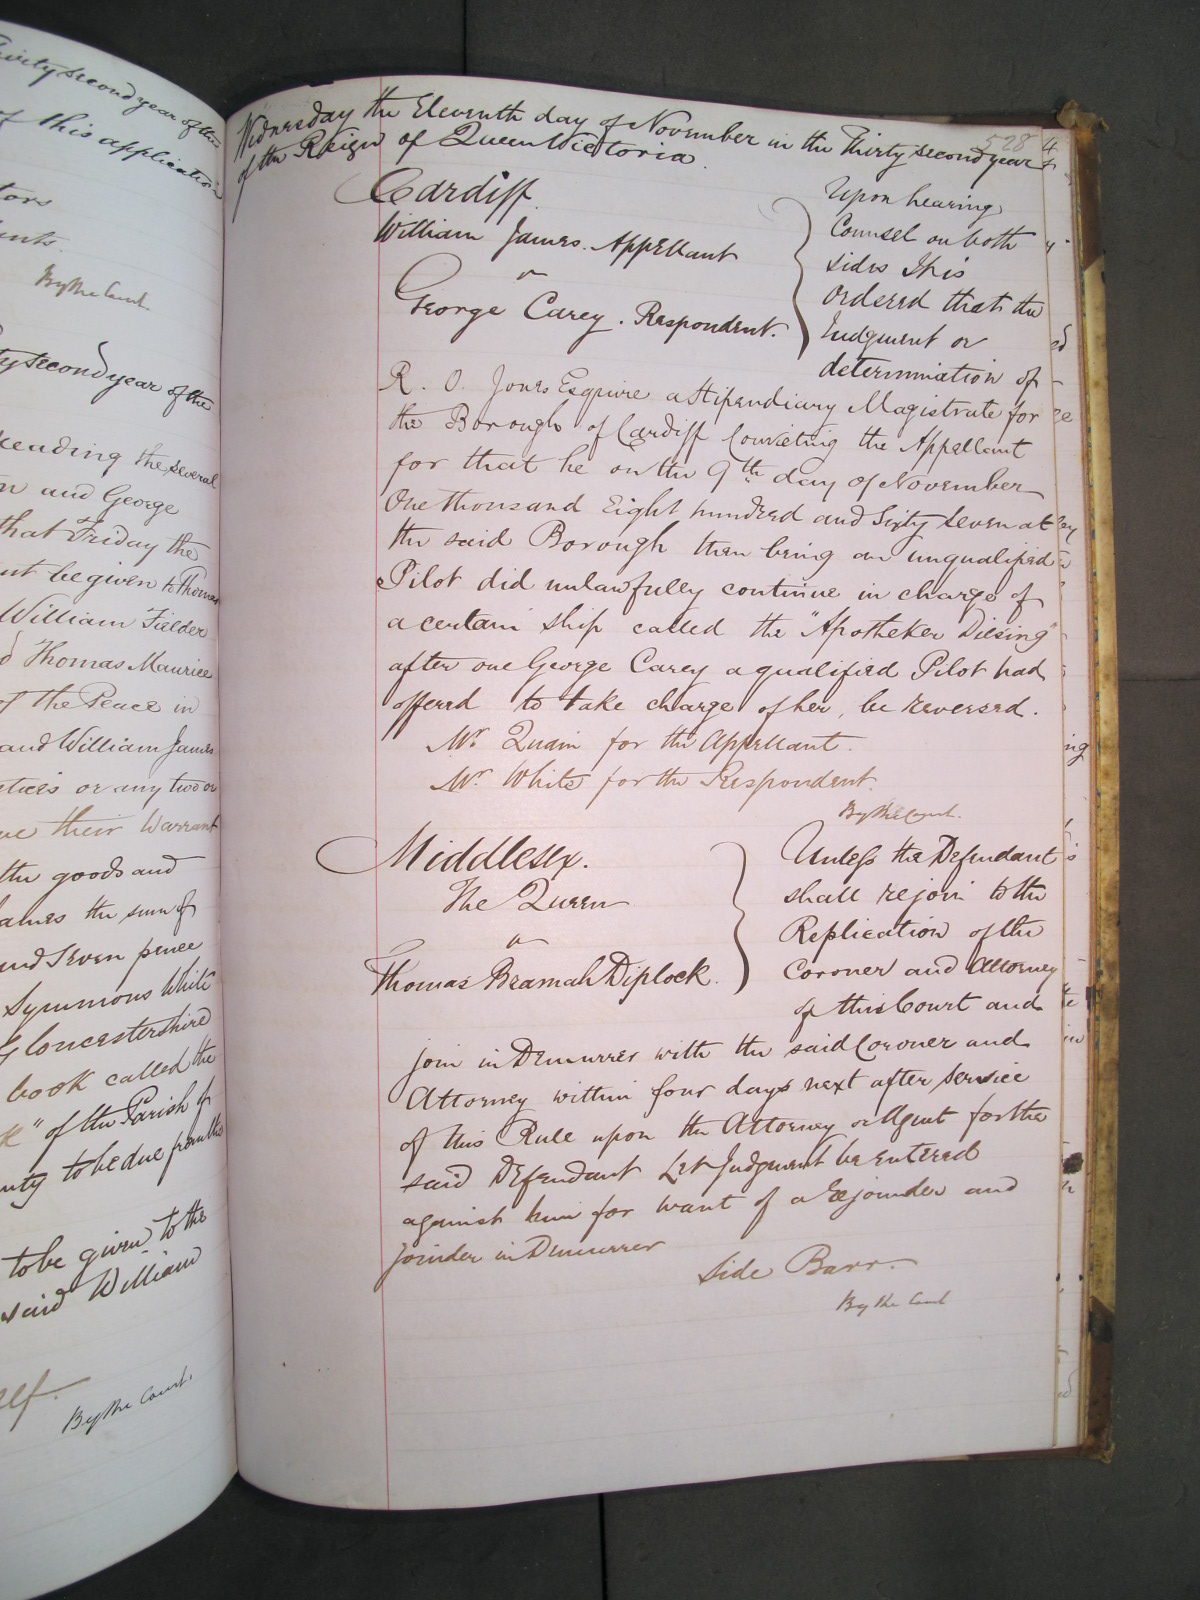 thirty second year of the
of this application
By the Court
ty second year of the
reading the several
and George
that Friday the
be given to Thomas
William Fielder
Thomas Maurice
of the Peace in
and William James
or any two or
their Warrant
the goods and
James the sum of
and seven pence
Symmons White
Gloucestershire
book called the
" of the Parish of
to be due from the
to be given to the
said William
By the Court.
528
Wednesday the Eleventh day of November in the Thirty second year
of the Reign of Queen Victoria.
Cardiff.
William James. Appellant
v
George Carey. Respondent.
Upon hearing
Counsel on both
sides It is
ordered that the
Judgment or
determination of
R. O. Jones Esquire a Stipendiary Magistrate for
the Borough of Cardiff Convicting the Appellant
for that he on the 9th day of November
One thousand Eight hundred and Sixty Seven at
the said Borough then being an unqualified
Pilot did unlawfully continue in charge of
a certain ship called the "Apotheker Diesing"
after one George Carey a qualified Pilot had
offered to take charge of her, be reversed.
Mr. Quain for the Appellant.
Mr. White for the Respondent.
By the Court.
Middlesex.
The Queen
v
Thomas Bramah Diplock.
Unless the Defendant
shall rejoin to the
Replication of the
Coroner and Attorney
of this Court and
join in Demurrer with the said Coroner and
Attorney within four days next after service
of this Rule upon the Attorney or Agent for the
said Defendant Let Judgment be entered
against him for want of a Rejoinder and
joinder in Demurrer
Side Barr.
By the Court